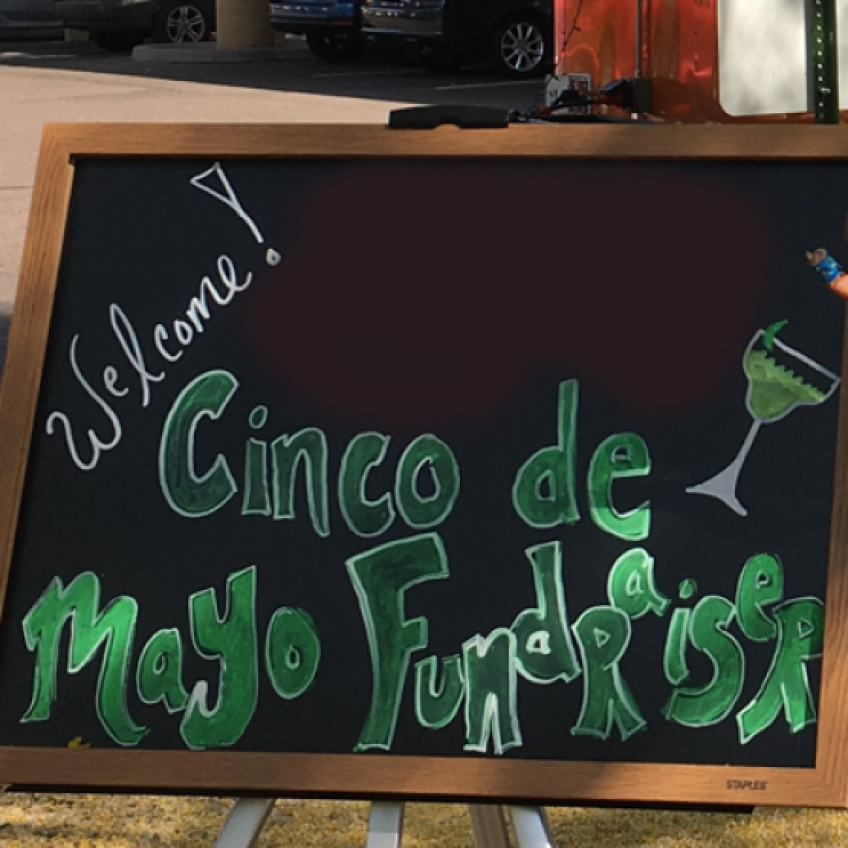 Welcome!
Cinco de
Mayo FundRaiseR
STAPLES